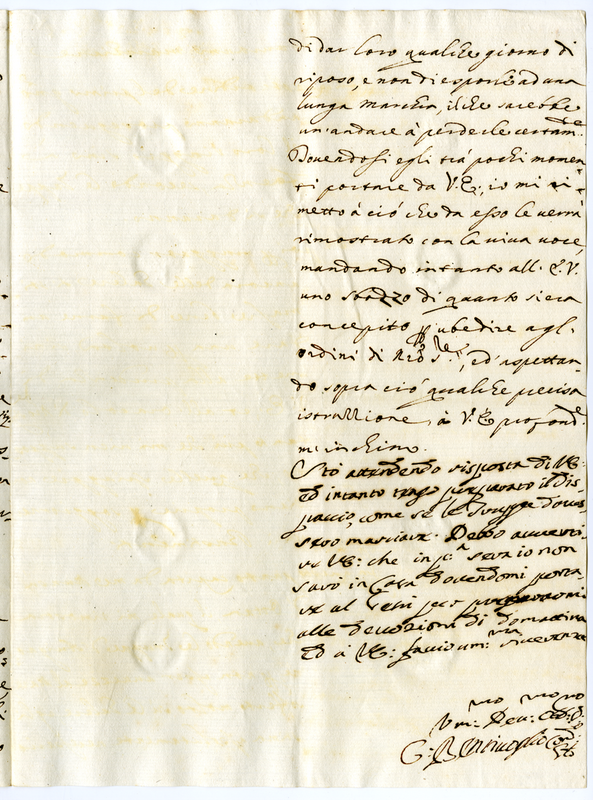 di dar loro qualche giorno di
riposo, e non di esporli ad una
lunga marchia, il che sarebbe
un' andare à perderle certam.te
Dovendosi egli trà pochi momen-
ti portare da V.E., io mi ri-
metto à ciò che da esso le verrà
rimostrato con la viva voce,
mandando intanto all' E.V.
uno sbozzo di quanto si era
concepito p ubedire agl'
ordini di N.ro S.re, ed' aspettan-
do sopra ciò qualche precisa
istruzzione, à V.E. profond.e
m'inchino.
Sto attendendo risposta di VE:
ed intanto tengo preparato il dis-
paccio, come se le Truppe doves-
sero marciare. Debbo avverti-
re VE: che in q.a sera io non
sarò in Casa dovendomi porta-
re al
alle devozioni di domattina
ed à VE: faccio um.ma riverenza
Um: Dev.mo
G: Bentivoglio